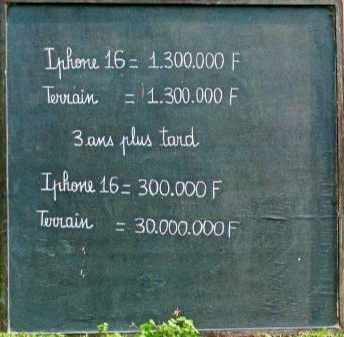 Iphone 16 = 1.300.000 F
Terrain = 1.300.000 F
3 ans plus tard
Iphone 16 = 300.000 F
Terrain = 30.000.000 F